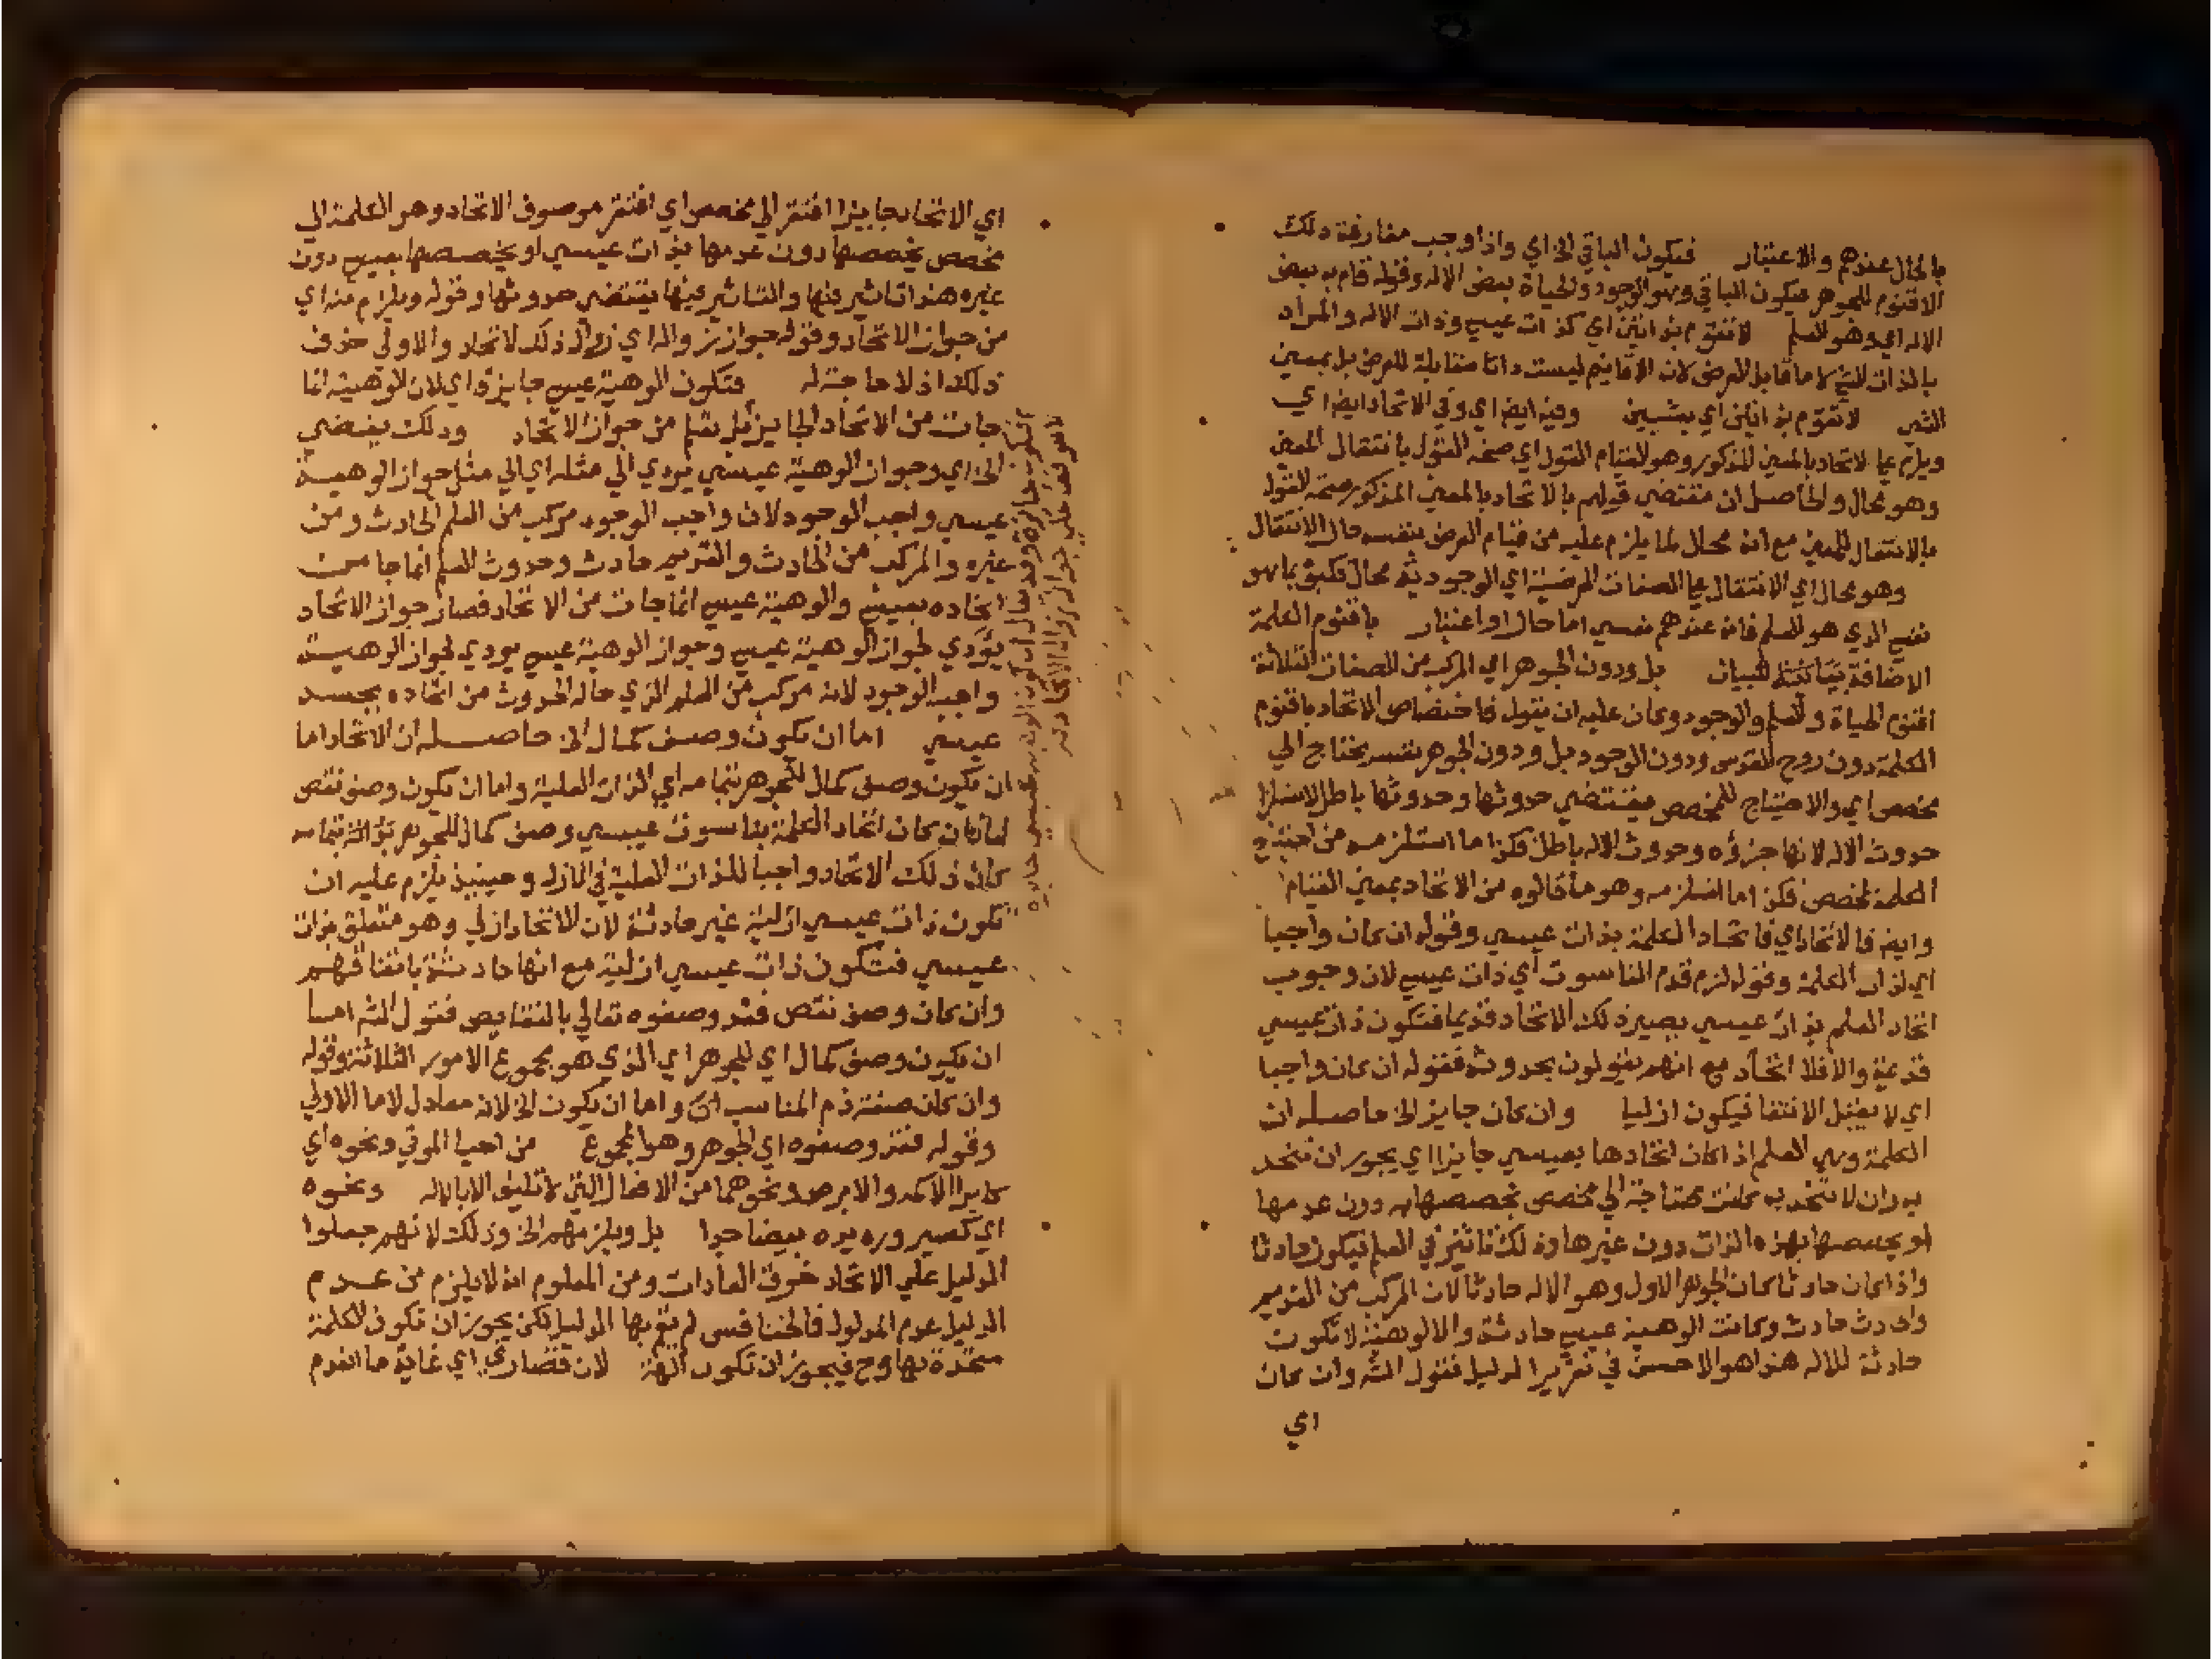 بالحال عندهم والاعتبار فيكون الباقي الخ اي واذا وجب مفارقة ذلك
الاقنوم للجوهر فيكون الباقي وهو الوجود والحياة بعض الاله وقوله قام به بعض
الاله اي وهو العلم لا تقوم بذاتين اي كذات عيسي وذات الاله والمراد
بالذات الشي لا ما قابل العرض لان الاقانيم ليست ذاتا مقابلة للعرض بل بمعني
الشي لا تقوم بذاتين اي بشيين وفيه ايضا اي وفي الاتحاد ايضا اي
ويلزم علي الاتحاد بالمعني المذكور وهو القيام القول اي صحة القول بانتقال المعني
وهو محال والحاصل ان مقتضي قولهم بالاتحاد بالمعني المذكور صحة القول
بالانتقال للمعني مع انه محال لما يلزم عليه من قيام العرض بنفسه حال الانتقال
وهو محال اي الانتقال علي الصفات العرضية اي الوجودية محال فكيف بما هو
نفسي الذي هو العلم فانه عندهم نفسي اما حال او اعتبار باقنوم الكلمة
الاضافة بيانية للبيان بل ودون الجوهر اي المركب من الصفات الثلاثة
اقنوم الحياة والعلم والوجود وكان عليه ان يقول فاختصاص الاتحاد باقنوم
الكلمة دون روح القدس ودون الوجود بل ودون الجوهر نفسه يحتاج الي
مخصص اي والاحتياج للمخصص يقتضي حدوثها وحدوثها باطل لاستلزا
حدوث الاله لانها جزؤه وحدوث الاله باطل فكذا ما استلزمه من احتياج
الكلمة لمخصص فكذا ما استلزمه وهو ما قالوه من الاتحاد بمعني القيام
وايضا فالاتحاد اي فاتحاد الكلمة بذات عيسي وقوله ان كان واجبا
اي لذات الكلمة وقوله لزم قدم الناسوت اي ذات عيسي لان وجوب
اتحاد العلم بذات عيسي يصير ذلك الاتحاد قديما فتكون ذات عيسي
قديمة والا فلا اتحاد مع انهم يقولون بحدوثه فقوله ان كان واجبا
اي لا يقبل الانتفا فيكون ازليا وان كان جايز الخ حاصله ان
الكلمة وهي العلم اذا كان اتحادها بعيسي جايزا اي يجوز ان تتحد
به وان لا تتحد به كانت محتاجة الي مخصص يخصصها به دون عدمها
او يخصصها بهذه الذات دون غيرها وذلك تاثير في العلم فيكون حادثا
واذا كان حادثا كان الجوهر الاول وهو الاله حادثا لان المركب من القديم
والحادث حادث وكانت الوهية عيسي حادثة والالوهية لا تكون
حادثة للاله هذا هو الاحسن في تقرير الدليل فقول الش وان كان
اي
اي الاتحاد جايزا افتقر الي مخصص اي افتقر موصوف الاتحاد وهو الكلمة الي
مخصص يخصصها دون عدمها بذات عيسي او يخصصها بعيسي دون
غيره هذا تاثير فيها والتاثير فيها يقتضي حدوثها وقوله ويلزم منه اي
من جواز الاتحاد وقوله جواز زواله اي زوال ذلك الاتحاد والاولي حذف
ذلك اذ لا حاجة له فتكون الوهية عيسي جايزة اي لان الوهيته انما
جات من الاتحاد الجايز كما تقدم من جواز الاتحاد وذلك يفضي
الخ اي وجواز الوهية عيسي يودي الي مثله اي الي مثل جواز الوهية
عيسي واجب الوجود لان واجب الوجود مركب من العلم الحادث ومن
غيره والمركب من الحادث والقديم حادث وحدوث العلم انما جا من
اتحاده بعيسي والوهية عيسي انما جات من الاتحاد فصار جواز الاتحاد
يودي لجواز الوهية عيسي وجواز الوهية عيسي يودي لجواز الوهية
واجب الوجود لانه مركب من العلم الذي حاله الحدوث من اتحاده بجسد
عيسي اما ان يكون وصف كمال الخ حاصله ان الاتحاد اما
ان يكون وصف كمال للجوهر بتمامه اي الذات العلية واما ان يكون وصف نقص
كان ذلك الاتحاد واجبا للذات العلية في الازل وحينيذ يلزم عليه ان
تكون ذات عيسي ازلية غير حادثة لان الاتحاد ازلي وهو متعلق بذات
عيسي فتكون ذات عيسي ازلية مع انها حادثة باتفاقهم
وان كان وصف نقص فقد وصفوه تعالي بالنقايص فقول الش اما
ان يكون وصف كمال اي للجوهر اي الذي هو مجموع الامور الثلاثة وقوله
وان كان صفة ذم المناسب ان واما ان يكون الخ لانه معادل لاما الاولي
وقوله فقد وصفوه اي الجوهر وهو المجموع من احيا الموتي ونحوه اي
كابرا الاكمه والابرص ونحوهما من الافعال التي لا تليق الا بالاله ونحوه
اي كصيرورة يده بيضا جدا بل ويلزمهم الخ وذلك لانهم جعلوا
الدليل علي الاتحاد خوارق العادات ومن المعلوم انه لا يلزم من عدم
الدليل عدم المدلول فالخنافس لم يقم بها الدليل لكن يجوز ان تكون الكلمة
متحدة بها وح فيجوز ان تكون الهة لان قصاري اي غاية ما انعدم